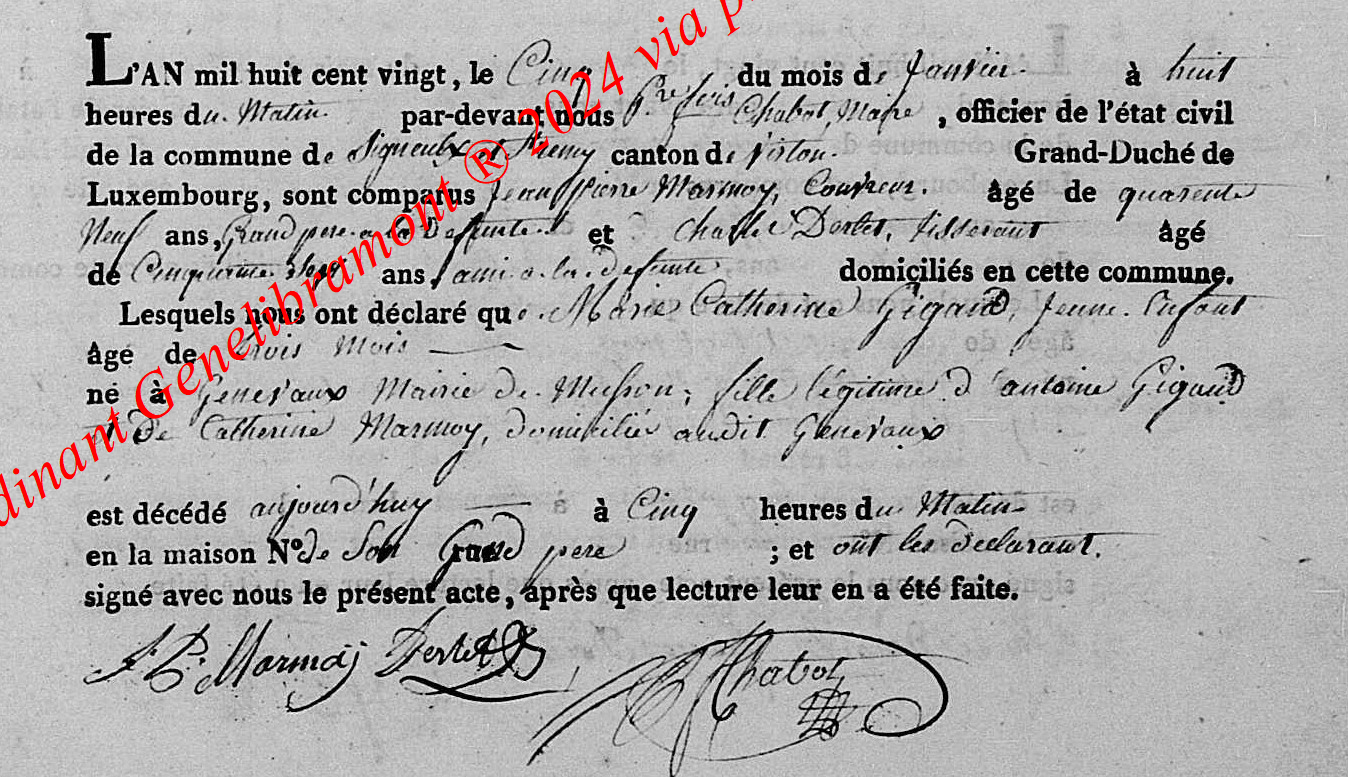 L'AN mil huit cent vingt, le Cinq du mois de Janvier à huit
heures du Matin par-devant nous Pre fois Chabot, Maire, officier de l'état civil
de la commune de Signeulx et canton de Virton Grand-Duché de
Luxembourg, sont comparus Jean Pierre Marmoy, Couvreur âgé de quarente
Neuf ans, Grand pere a la Deffunte et Charle Derlet, tisserant âgé
de Cinquante ans, ami a la defunte domiciliés en cette commune.
Lesquels nous ont déclaré que Marie Catherine Gigand, Jeune Enfant
âgé de trois Mois
né à Genevaux Mairie de Musson, fille légitime d'antoine Gigand
et de Catherine Marmoy, domicilié audit Genevaux
est décédé aujourd'huy à Cinq heures du Matin
en la maison N° de Son Grand pere ; et ont les declarant.
signé avec nous le présent acte, après que lecture leur en a été faite.
J. P. Marmoj Derlet Chabot
dinant Genelibramont ® 2024 via p